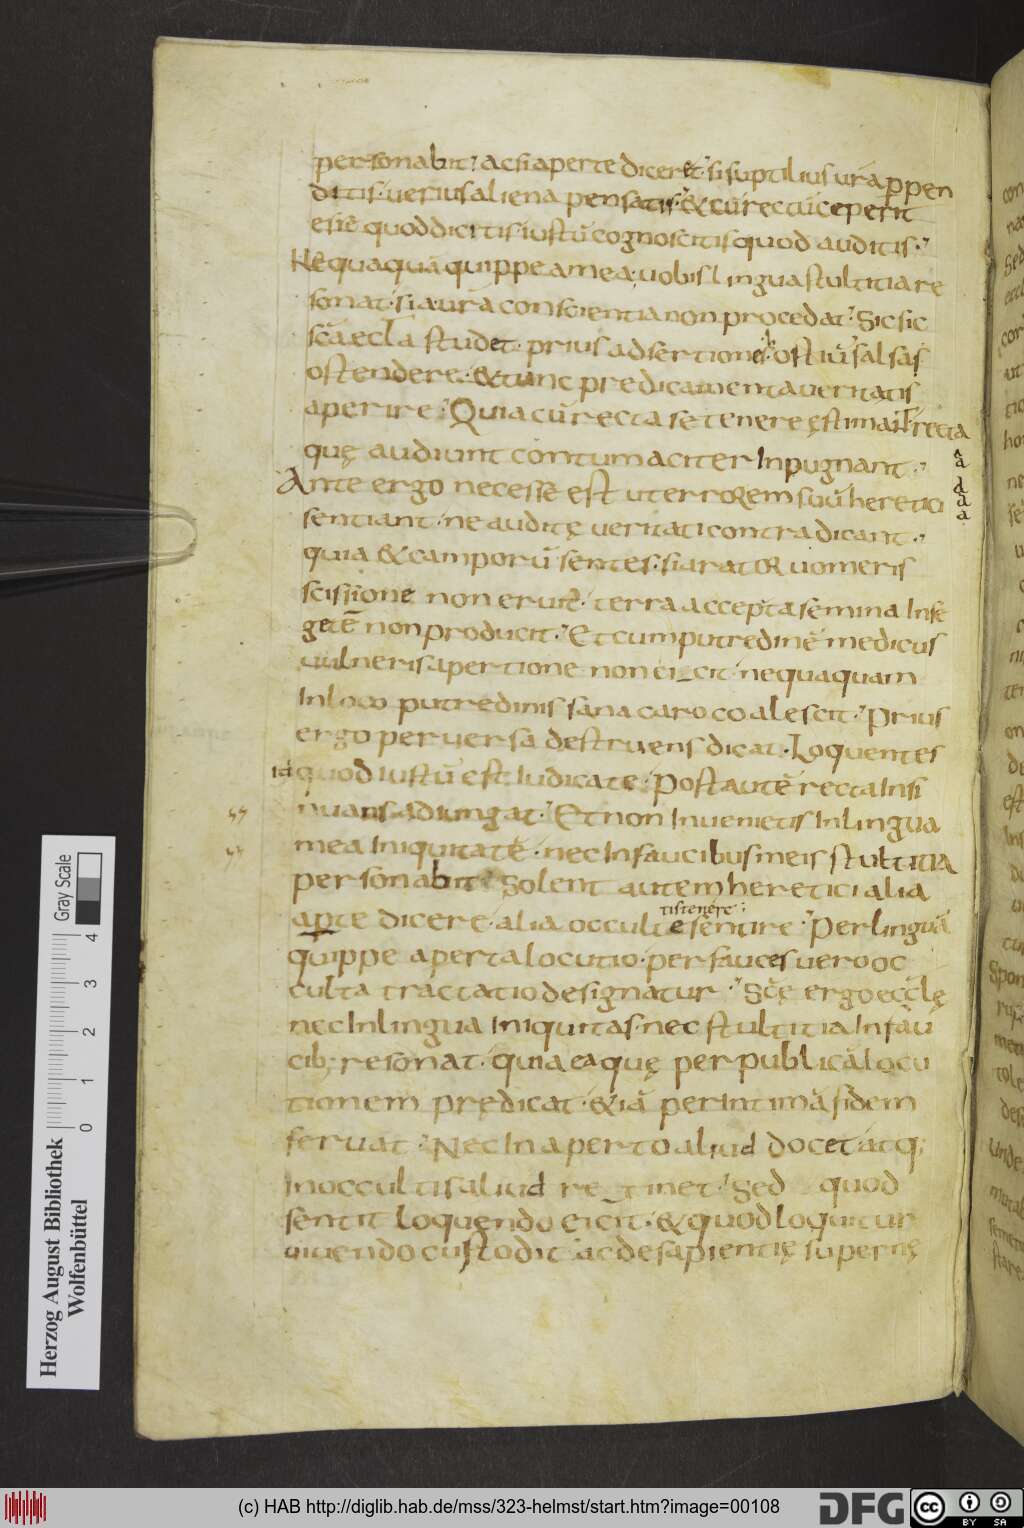 personabit; acsi aperte diceret; si suptilius ura ppen
ditis; uerius aliena pensatis; & cũ rectũ ceperit
esse quod dicitis; iustũ cognoscitis quod auditis;
Nequaquã quippe a mea uobis lingua stultitia re
sonat; si a ura conscientia non procedat; Sic sic
scã eccla studet prius adsertionẽ ostiũ falsas
ostendere; & tunc predicamenta ueritatis
aperire; Quia cũ recta se tenere ęstimant recta
quę audiunt contumaciter Inpugnant;
Ante ergo necesse est ut errorem suũ heretici
sentiant; ne auditę ueritati contradicant;
quia & camporũ sentes si aratoR uomeris
scissione non eruit; terra accepta semina Inse
getẽ non producit; Et cum putredinẽ medicus
uulneris apertione non eicit nequaquam
In loco putredinis sana caro coalescit; Prius
ergo peruersa destruens dicat; Loquentes
id quod iustũ est Iudicate; Post autẽ recta Insi
nuans adiungat; Et non Inuenietis In lingua
mea Iniquitatẽ; nec In faucibus meis stultitia
personabit; Solent autem heretici alia
apte dicere alia occulte sentire; Per linguã
tis tenere
quippe aperta locutio; per fauces uero oc
culta tractatio designatur; Scę ergo ecclę
nec In lingua Iniquitas; nec stultitia In fau
cib; resonat; quia ea quę per publicã locu
tionem prędicat; & iã per Intimã fidem
seruat; Nec In aperto aliud docet atq;
In occultis aliud retinet; Sed quod
sentit loquendo eicit; & quod loquitur
uiuendo custodit ac de sapientię supernę
Herzog August Bibliothek
Wolfenbüttel
Gray Scale
0 1 2 3 4
(c) HAB http://diglib.hab.de/mss/323-helmst/start.htm?image=00108
DFG
CC BY SA